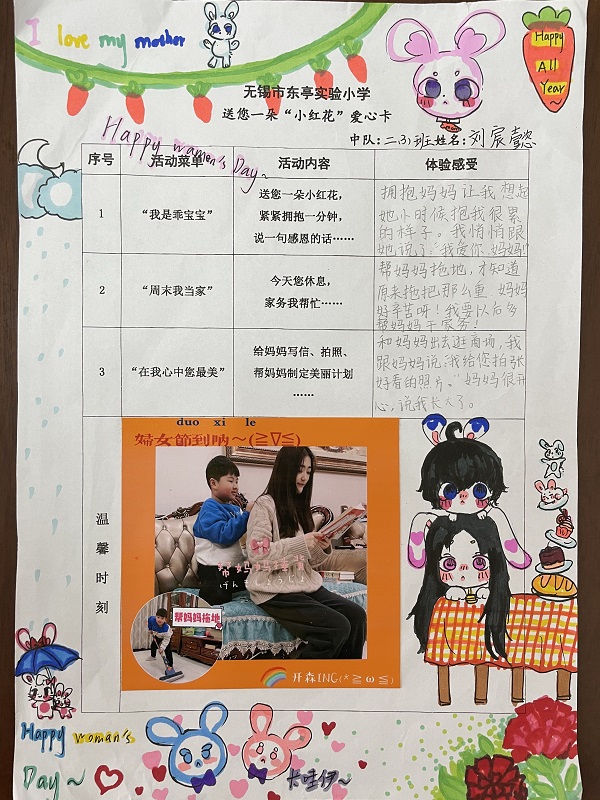 I love my mother
Happy
All
Year~
无锡市东亭实验小学
送您一朵“小红花”爱心卡
中队:二(3)班姓名:刘宸懿
Happy women's Day~
序号 活动菜单 活动内容 体验感受
1 “我是乖宝宝”
送您一朵小红花,
紧紧拥抱一分钟,
说一句感恩的话……
拥抱妈妈让我想起
她小时候抱我很累
的样子。我悄悄跟
她说了:“我爱你,妈妈!”
2 “周末我当家”
今天您休息,
家务我帮忙……
帮妈妈拖地,才知道
原来拖把那么重,妈妈
好辛苦呀!我要以后多
帮妈妈干家务!
3 “在我心中您最美”
给妈妈写信、拍照、
帮妈妈制定美丽计划
……
和妈妈出去逛商场,我
跟妈妈说:“我给您拍张
好看的照片。”妈妈很开
心,说我长大了。
温馨时刻
duo xi le
婦女節到吶~(≧∇≦)
帮妈妈捶背
帮妈妈拖地
开森ING(*≧ω≦)
Happy woman's
Day~
卡哇伊~